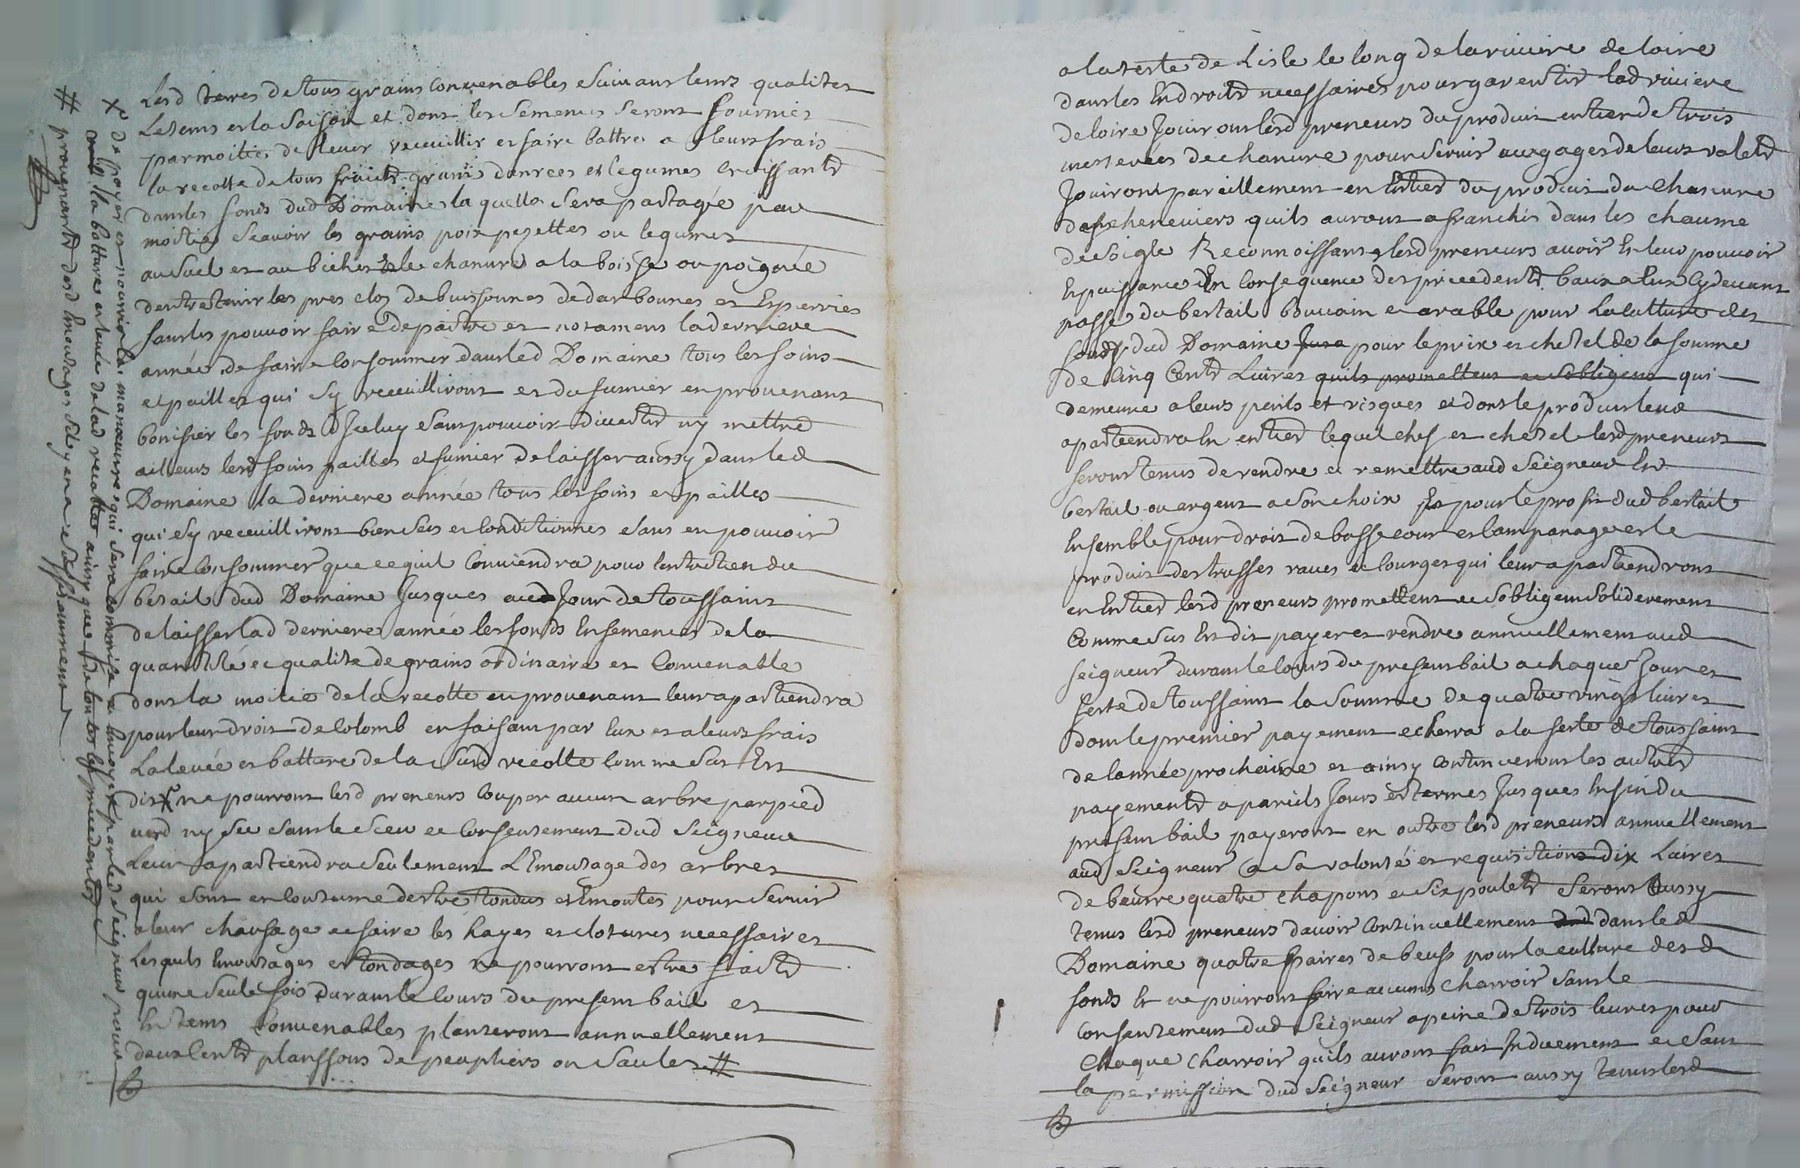 Lesd terres de tous grains convenables suivant leurs qualites
Le tems et la saison et dont les semences seront fournies
par moities de lever receuillir et faire battre a leurs frais
la recolte de tous fruicts grains danrees et legumes croissants
dans les fonds dud Domaine la quelle sera partagée par
moitiés scavoir les grains pois pezettes ou legumes
au suel et au bichet & le chanvre a la boisse ou poignée
dentretenir les pres clos de buissonnés dedarbounes et Esperries
sans les pouvoir faire depaistre et notament la derniere
année de faire consommer dans led Domaine tous les foins
et pailles qui sy receuilliront et du fumier en provenant
bonifier les fonds Diceluy sans pouvoir divertir ny mettre
ailleurs lesd foins pailles et fumier de laisser aussy dans led
Domaine la derniere année tous les foins et pailles
qui sy receuilliront bien secs et conditionnes sans en pouvoir
faire consommer que ce quil conviendra pour lentretien du
betail dud Domaine Jusques aud Jour de toussaint
de laisser lad derniere année les fonds Ensemences de la
quantité et qualite de grains ordinaire et Convenable
dont la moitie de la recolte en provenant leur apartiendra
pour leur droit de colomb en faisant par Eux et a leurs frais
La levée et batture de la susd recolte comme sus Est
dit X ne pourront lesd preneurs couper aucun arbre par pied
verd ny sec sans le sceu et consentement dud seigneur
Leur apartiendra seulement L'Emoutage des arbres
qui sont en coutume destre tondus et Emoutes pour servir
a leur chaufage et faire les hayes et clotures necessaires
Lesquels Emoutages et tondages ne pourront estre faicts
qu'une seule fois durant le cours du present bail et
En tems Convenables planteront annuellement
deux Cents planssons de peupliers ou saules #
X de payer et nourrir les manoeuvres qui sera commise et envoyée par led seigneur pour
la batture et levée de lad recolte ainsy que de toutes les precedentes
# provenants desd Emoutages sil y en a suffisamment
a la teste de Lisle le long de la riviere de loire
dans les Endroits necessaires pour garentir lad riviere
de loire Jouiront lesd preneurs du produit entier de trois
mesterées de chanvre pour servir aux gages de leurs valets
Jouiront pareillement en Entier du produit du Chanvre
des cheneviers quils auront afranchis dans les chaume
de seigle Reconnoissant lesd preneurs avoir En leur pouvoir
Et puissance En consequence des precedents baux a Eux cy devant
passes du bertail bouvain et arable pour La culture des
fonds dud Domaine pour le prix et chetel de la somme
de Cinq Cents Livres quils promettent et sobligent qui
demeure a leurs perils et risques et dont le produit leur
apartiendra En entier lequel chef et chetel lesd preneurs
seront tenus de rendre et remettre aud Seigneur En
bertail ou argent a son choix Et pour le profit dud bertail
Ensemble pour droit de basse cour et campanage et le
produit des trusses raves et courges qui leur apartiendront
en Entier lesd preneurs promettent et sobligent solidairement
Comme sus Est dit payer et rendre annuellement aud
seigneur durant le cours du present bail a chaque Jour et
feste de toussaint la somme de quatre vingt livres
dont le premier payement echerra a la feste de toussaint
de lannée prochaine et ainsy continueront les autres
payements a pareils Jours et termes Jusques En fin du
present bail payeront en outre lesd preneurs annuellement
aud Seigneur a sa volonté et requisition dix Livres
de beurre quatre chapons et six poulets seront aussy
tenus lesd preneurs davoir continuellement dans led
Domaine quatre paires de beufs pour la culture desd
fonds Et ne pourront faire aucuns charroir sans le
consentement dud Seigneur a peine de trois livres pour
Chaque charroir quils auront fait Induement et sans
la permission dud Seigneur Seront aussy tenus lesd